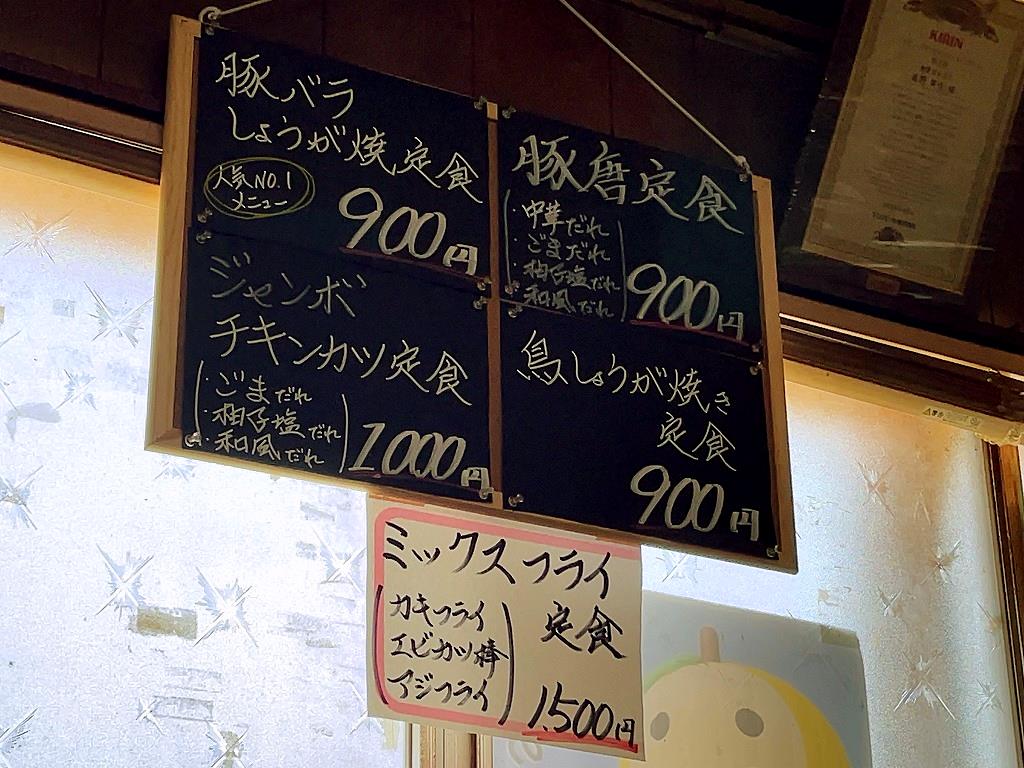 豚バラ
しょうが焼定食
人気NO.1
メニュー
900円
豚唐定食
・中華だれ
・ごまだれ
・柚子塩だれ
・和風だれ
900円
ジャンボ
チキンカツ定食
・ごまだれ
・柚子塩だれ
・和風だれ
1,000円
鳥しょうが焼き
定食
900円
ミックスフライ
定食
カキフライ
エビカツ棒
アジフライ
1,500円
KIRIN